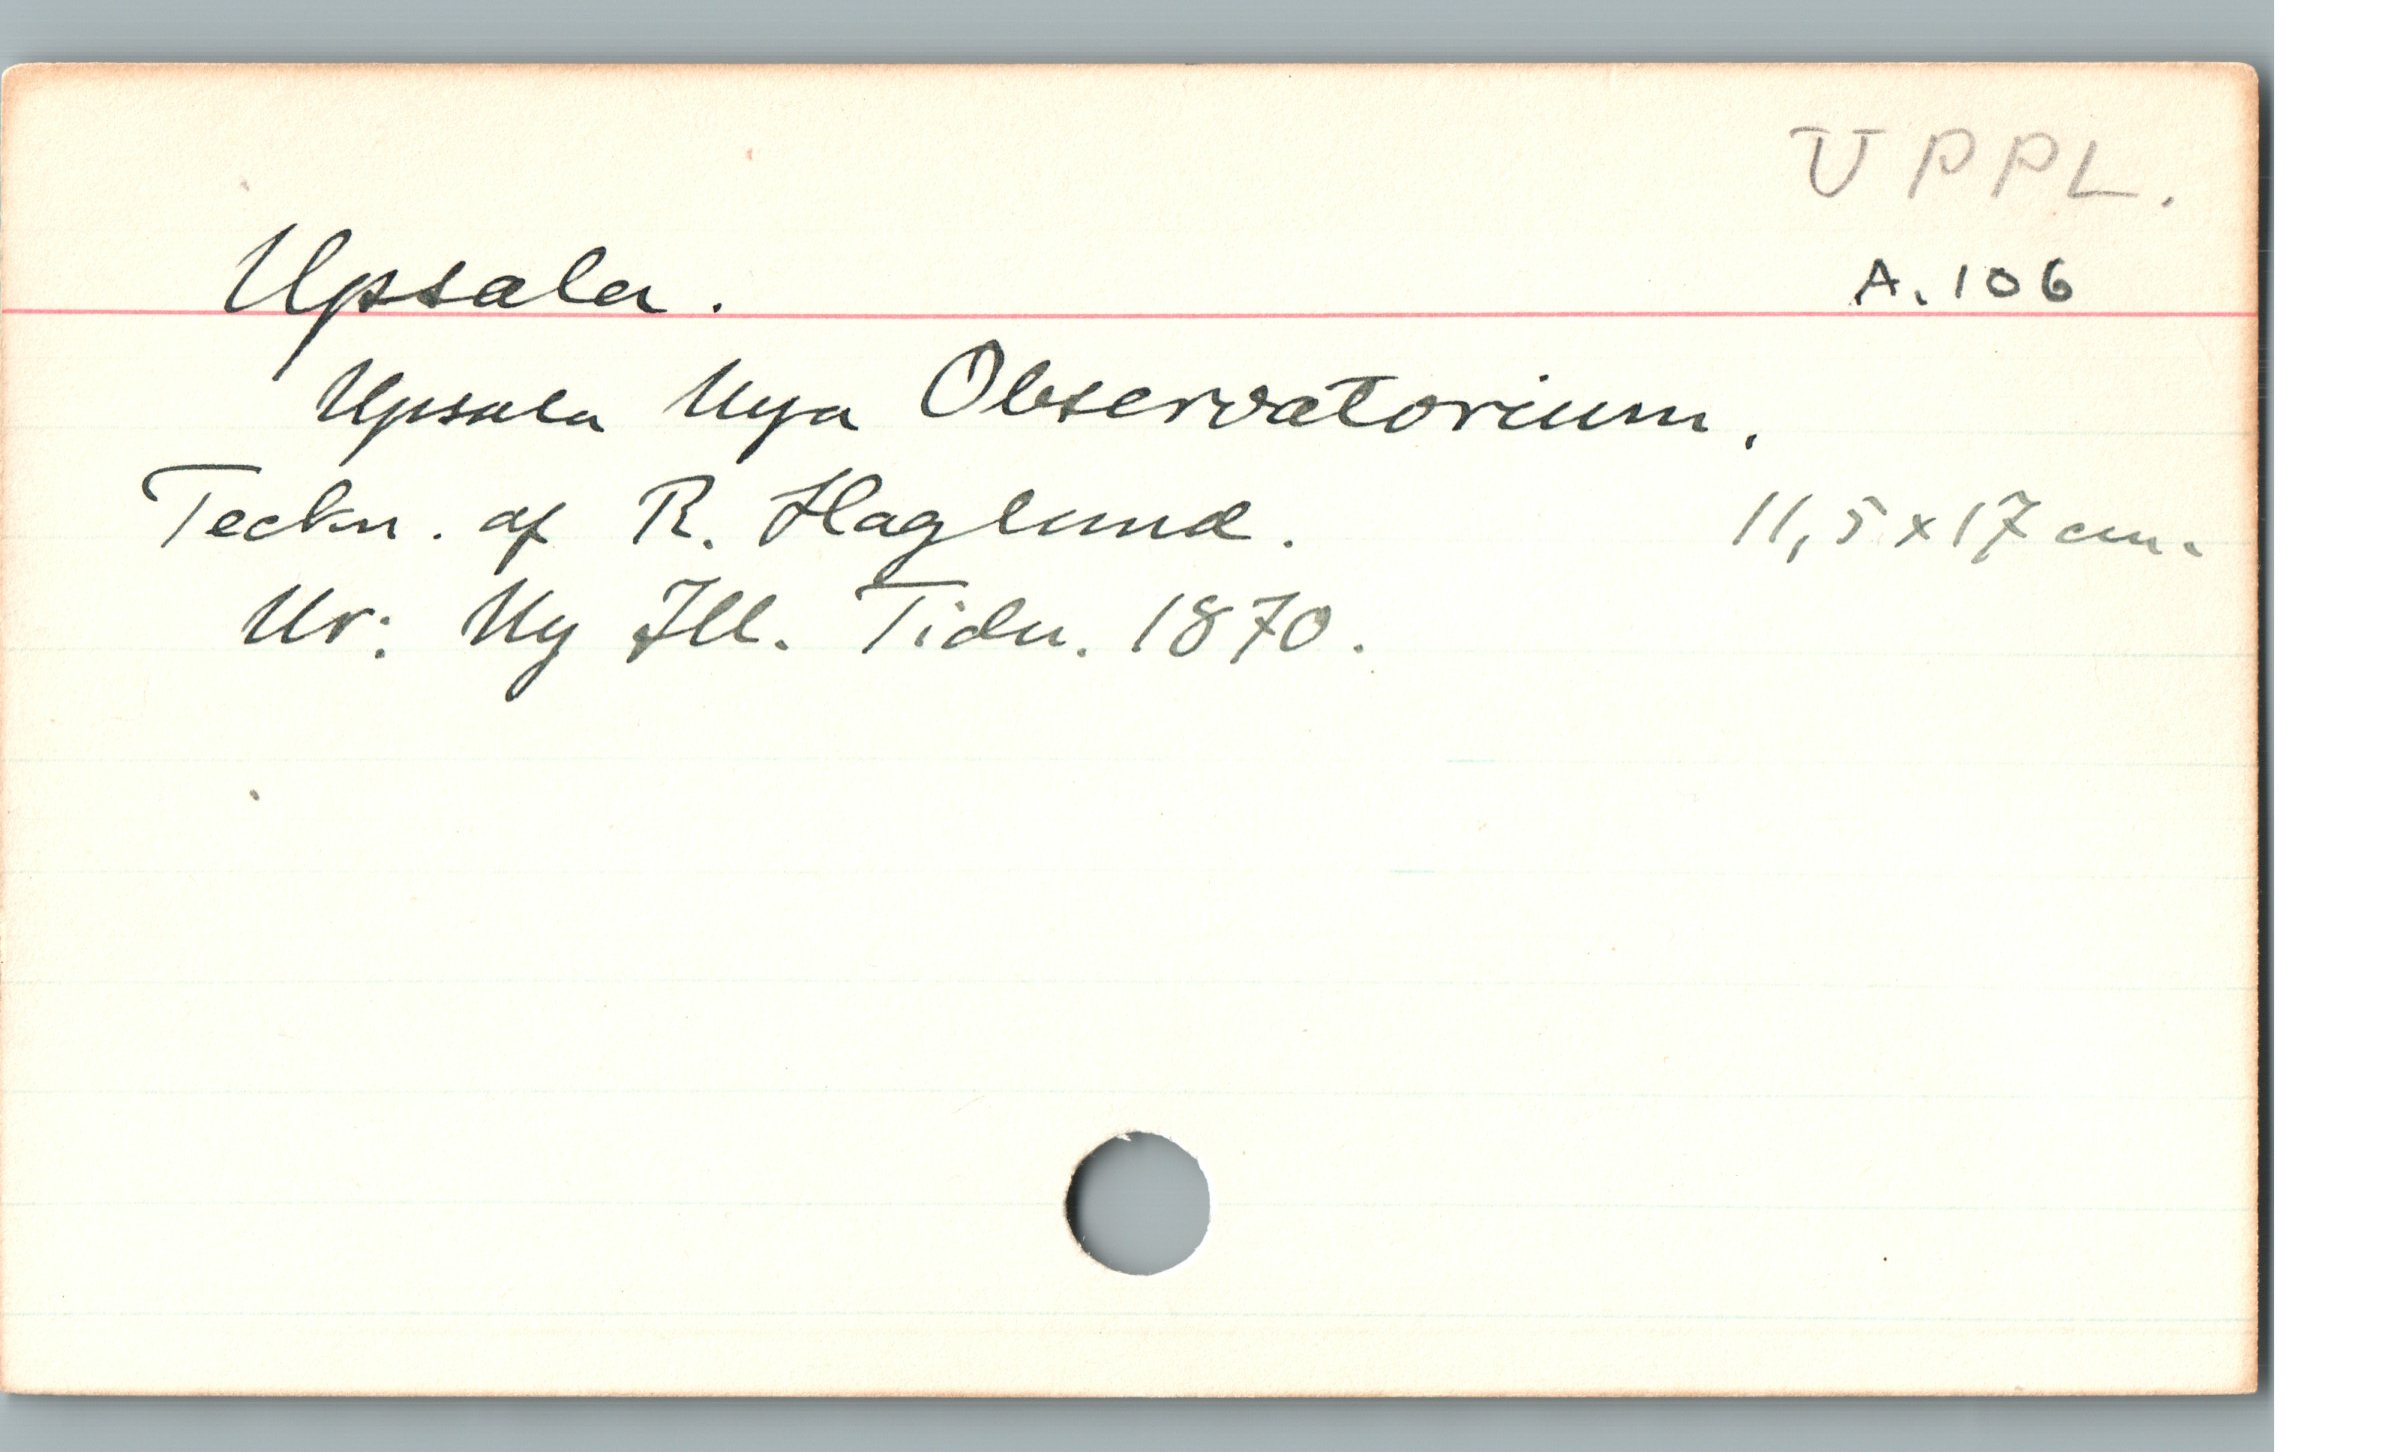 UPPL.
Upsala. A. 106
Upsala Nya Observatorium.
Teckn. af R. Haglund. 11,5 x 17 cm.
Ur: Ny Ill. Tidn. 1870.